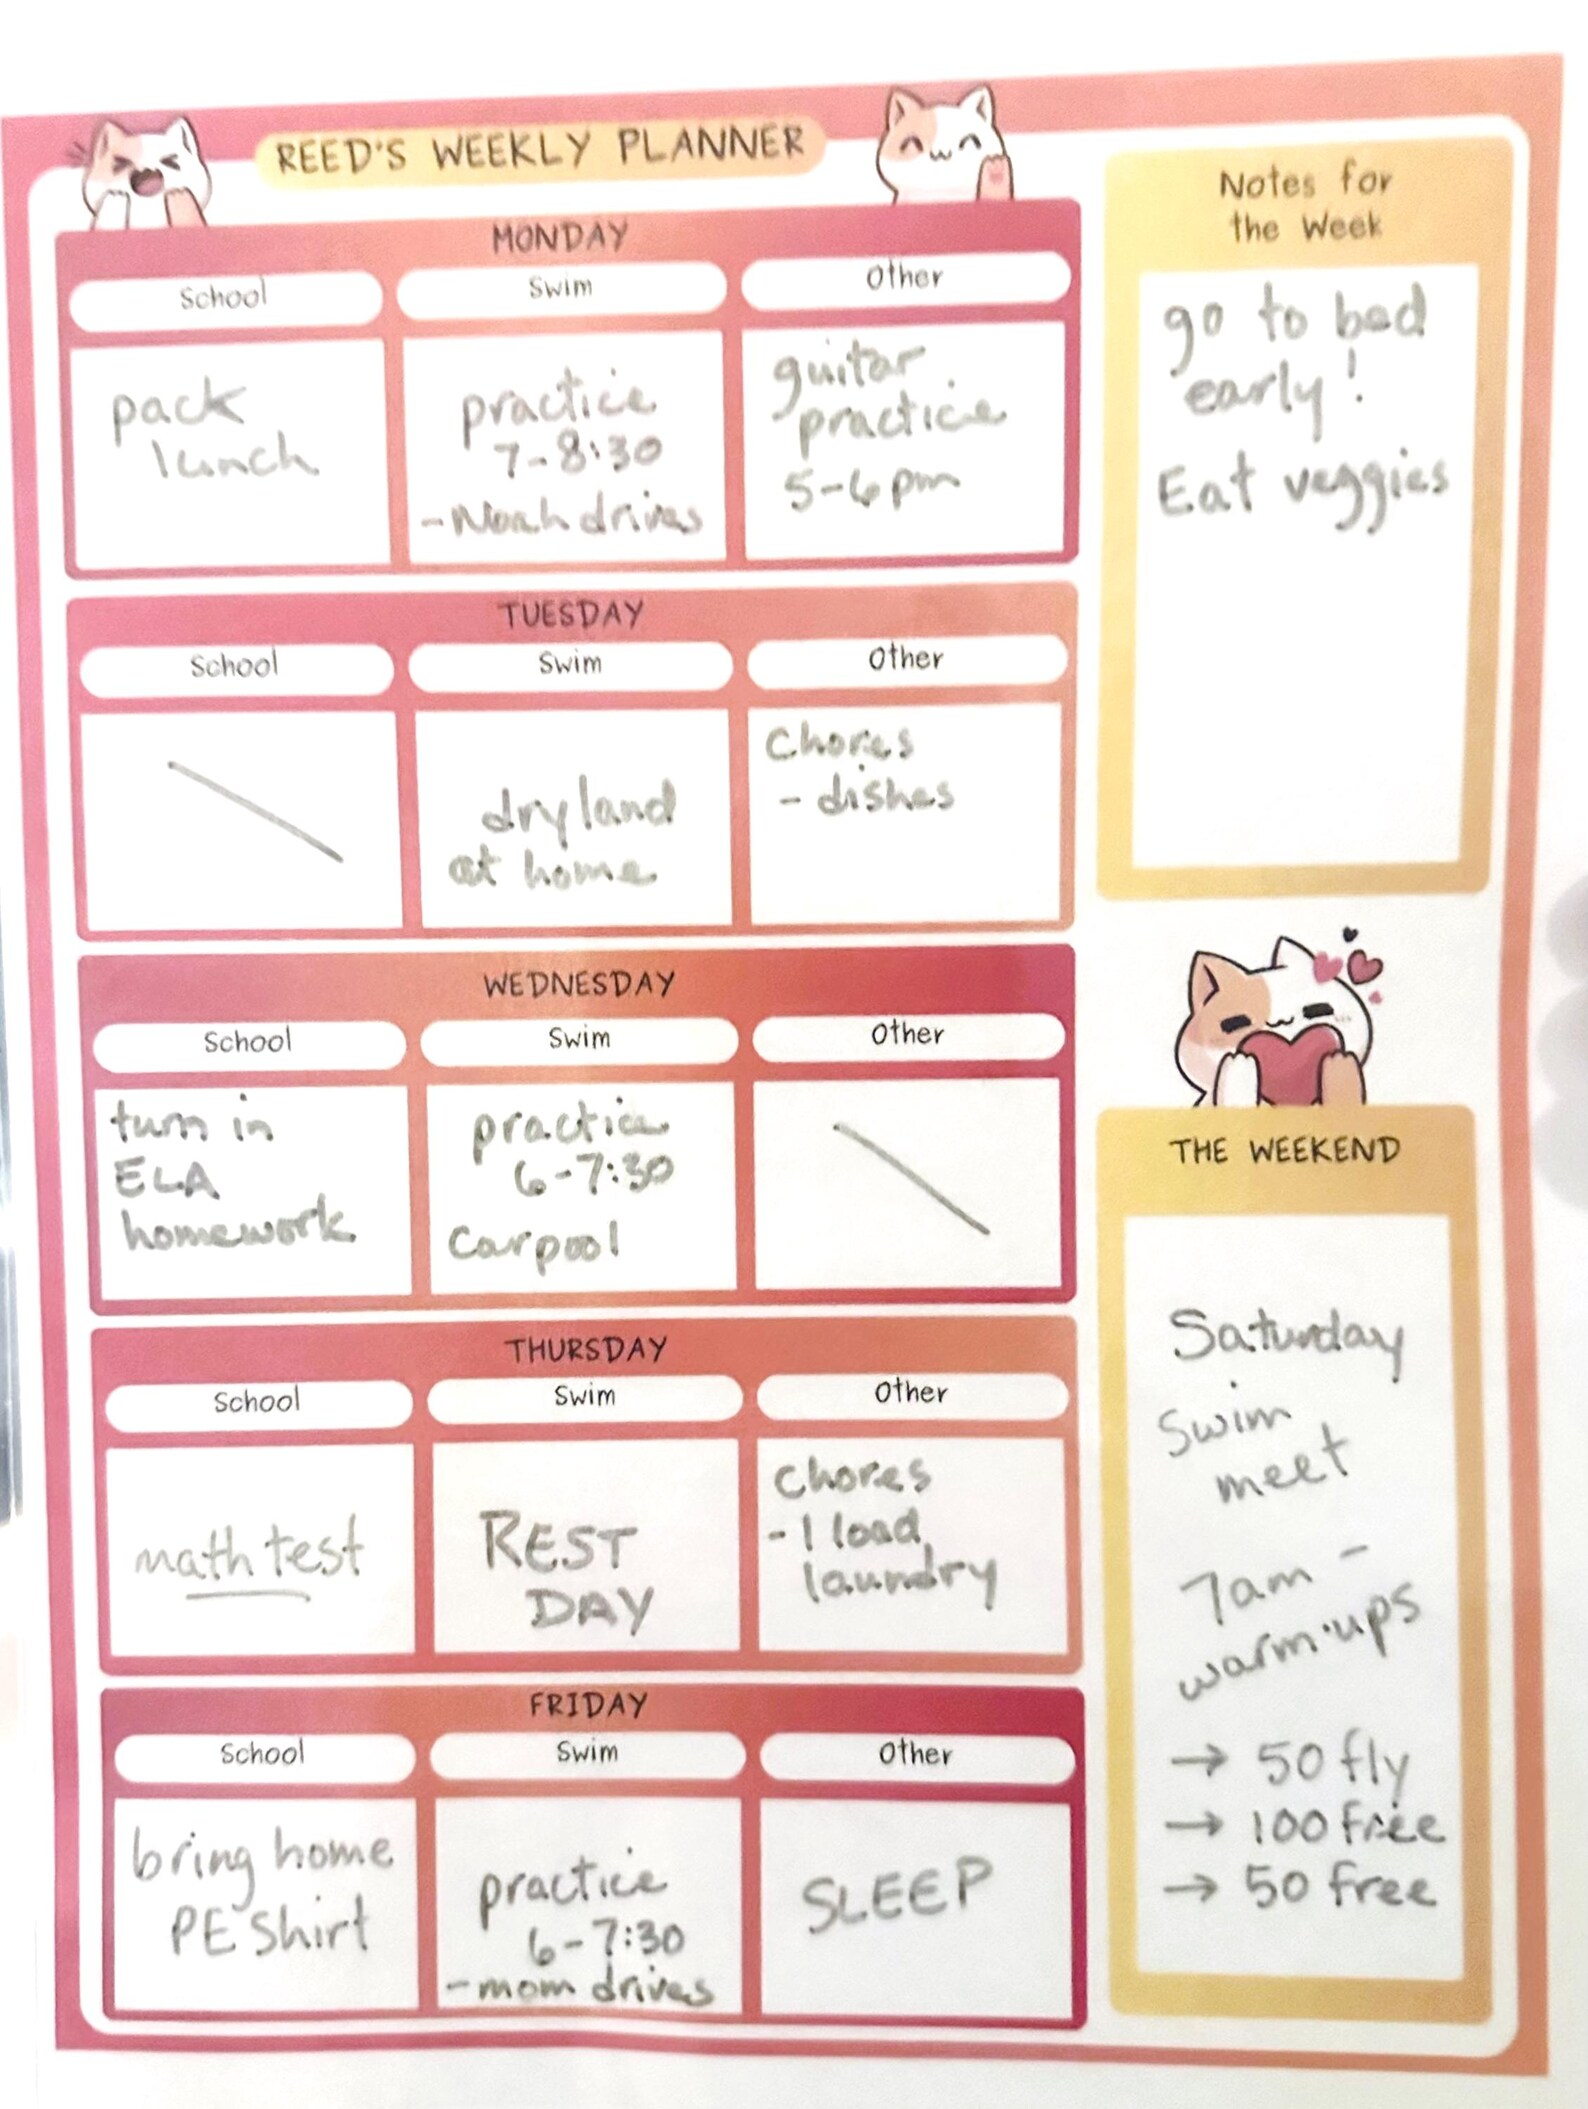 REED'S WEEKLY PLANNER
MONDAY
School
Swim
Other
pack
lunch
practice
7-8:30
-Noah drives
guitar
practice
5-6pm
TUESDAY
School
Swim
Other
dryland
at home
Chores
- dishes
WEDNESDAY
School
Swim
Other
turn in
ELA
homework
practice
6-7:30
Carpool
THURSDAY
School
Swim
Other
math test
REST
DAY
Chores
- 1 load
laundry
FRIDAY
School
Swim
Other
bring home
PE Shirt
practice
6-7:30
-mom drives
SLEEP
Notes for
the Week
go to bed
early!
Eat veggies
THE WEEKEND
Saturday
Swim
meet
7am -
warm-ups
→ 50 fly
→ 100 free
→ 50 free